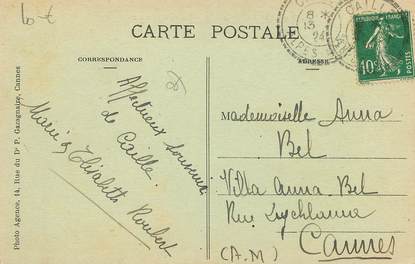 CARTE POSTALE
CORRESPONDANCE
ADRESSE
Affectueux souvenir
de Caille
Marie & Elisabeth Roubert
Mademoiselle Anna
Bel
Villa Anna Bel
Rue Lycklama
(A.M) Cannes
Photo Agence, 14, Rue du Dr P. Gazagnaire, Cannes
REPUBLIQUE FRANCAISE
10c
POSTES
CAILLE
8
13
24